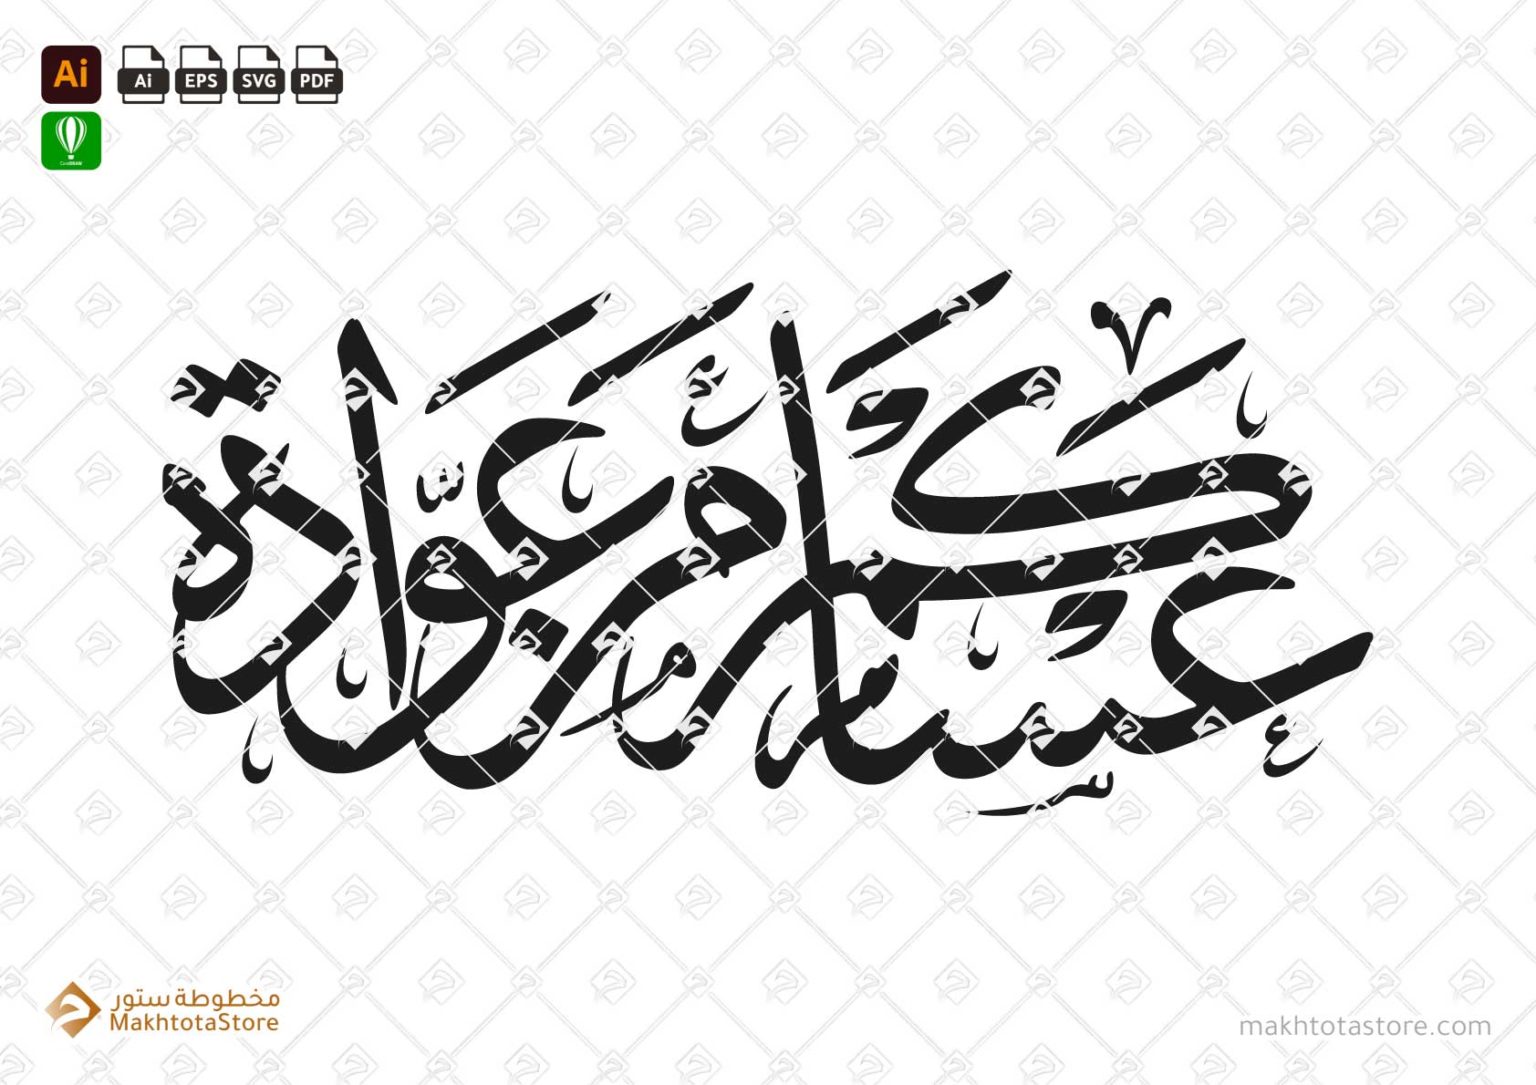 Ai Ai EPS SVG PDF
CorelDRAW
عساكم من عوّادة
مخطوطة ستور
MakhtotaStore
makhtotastore.com